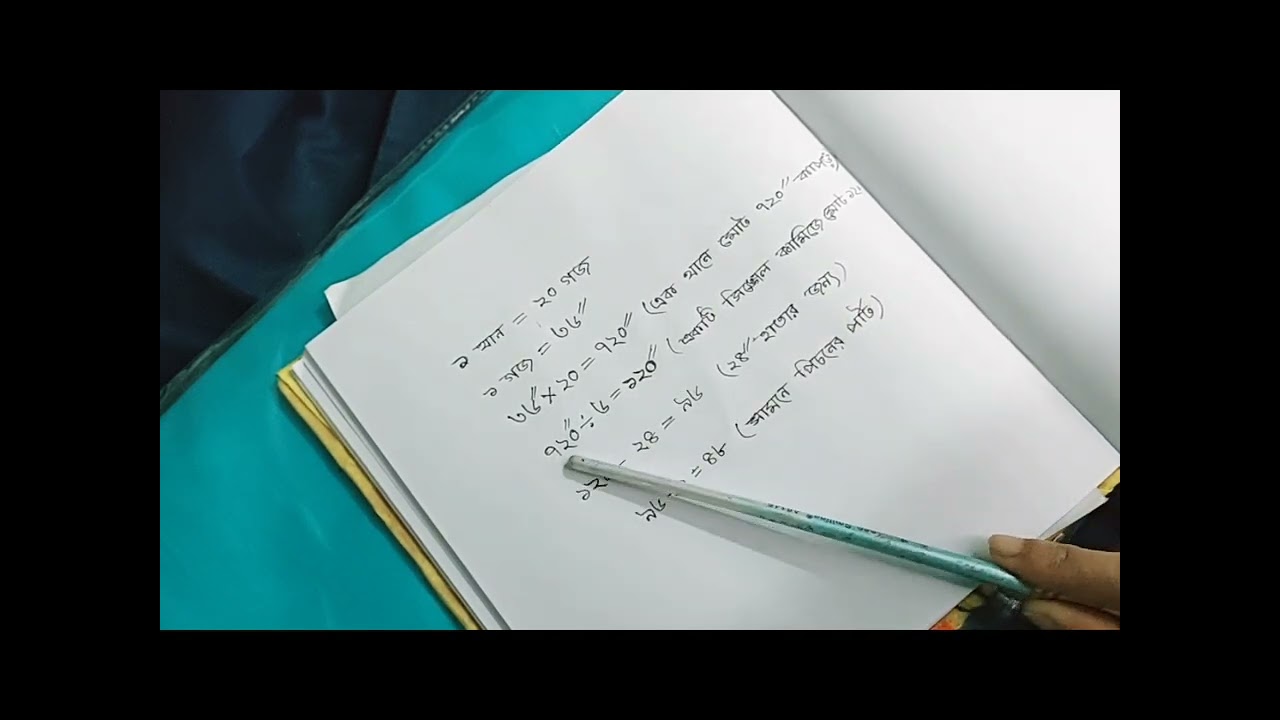 ১ থান = ২০ গজ
১ গজ = ৩৬"
৩৬" × ২০ = ৭২০" (এক থানে মোট ৭২০" কাপড়)
৭২০" ÷ ৬ = ১২০" (একটি সিঙ্গেল কামিজে মোট ১২০
১২ - ২৪ = ৯৬ (২৪" হাতার জন্য)
৯৬ = ৪৮ (সামনে পিচনের পার্ট)